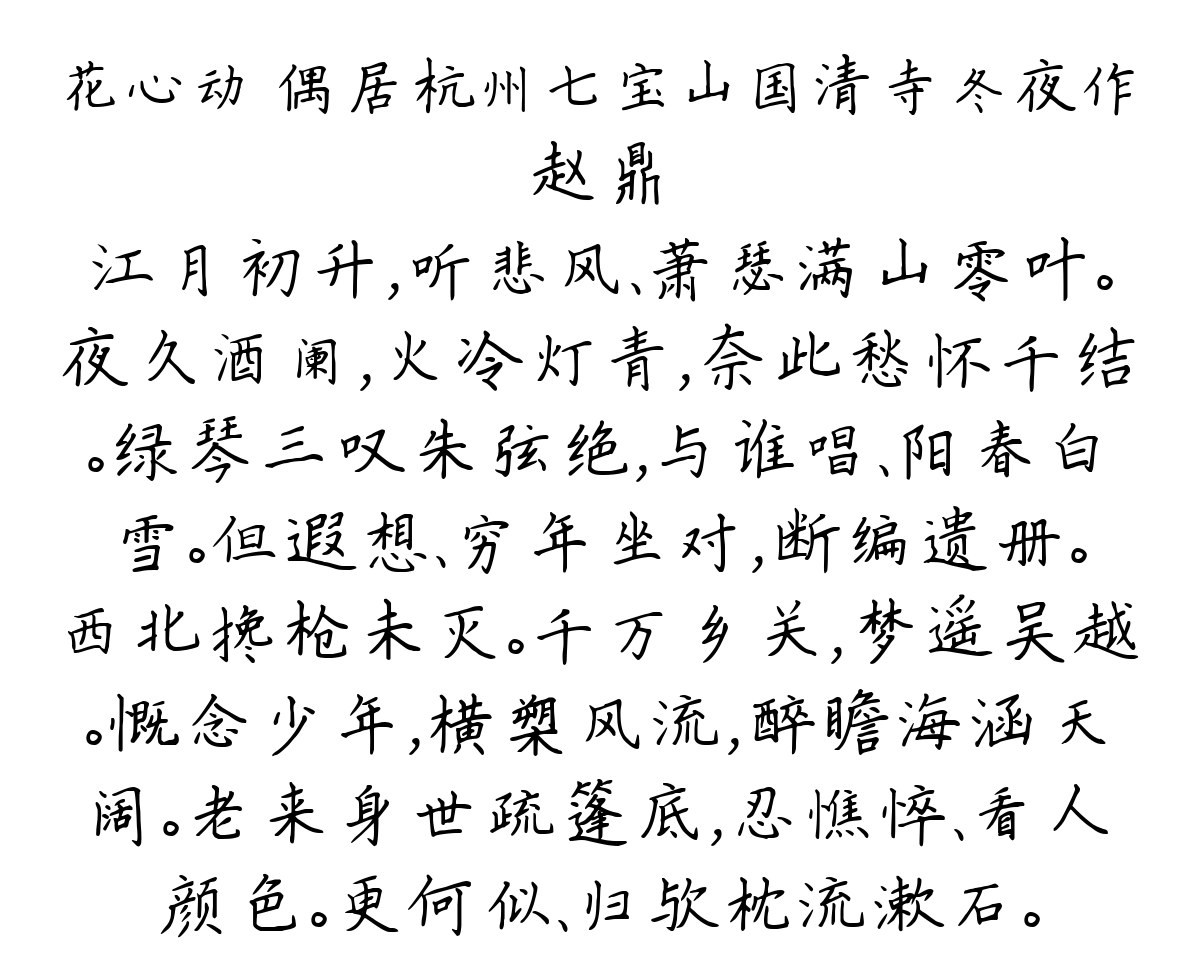 花心动 偶居杭州七宝山国清寺冬夜作
赵鼎
江月初升,听悲风、萧瑟满山零叶。
夜久酒阑,火冷灯青,奈此愁怀千结
。绿琴三叹朱弦绝,与谁唱、阳春白
雪。但遐想、穷年坐对,断编遗册。
西北搀枪未灭。千万乡关,梦遥吴越
。慨念少年,横槊风流,醉瞻海涵天
阔。老来身世疏篷底,忍憔悴、看人
颜色。更何似、归欤枕流漱石。